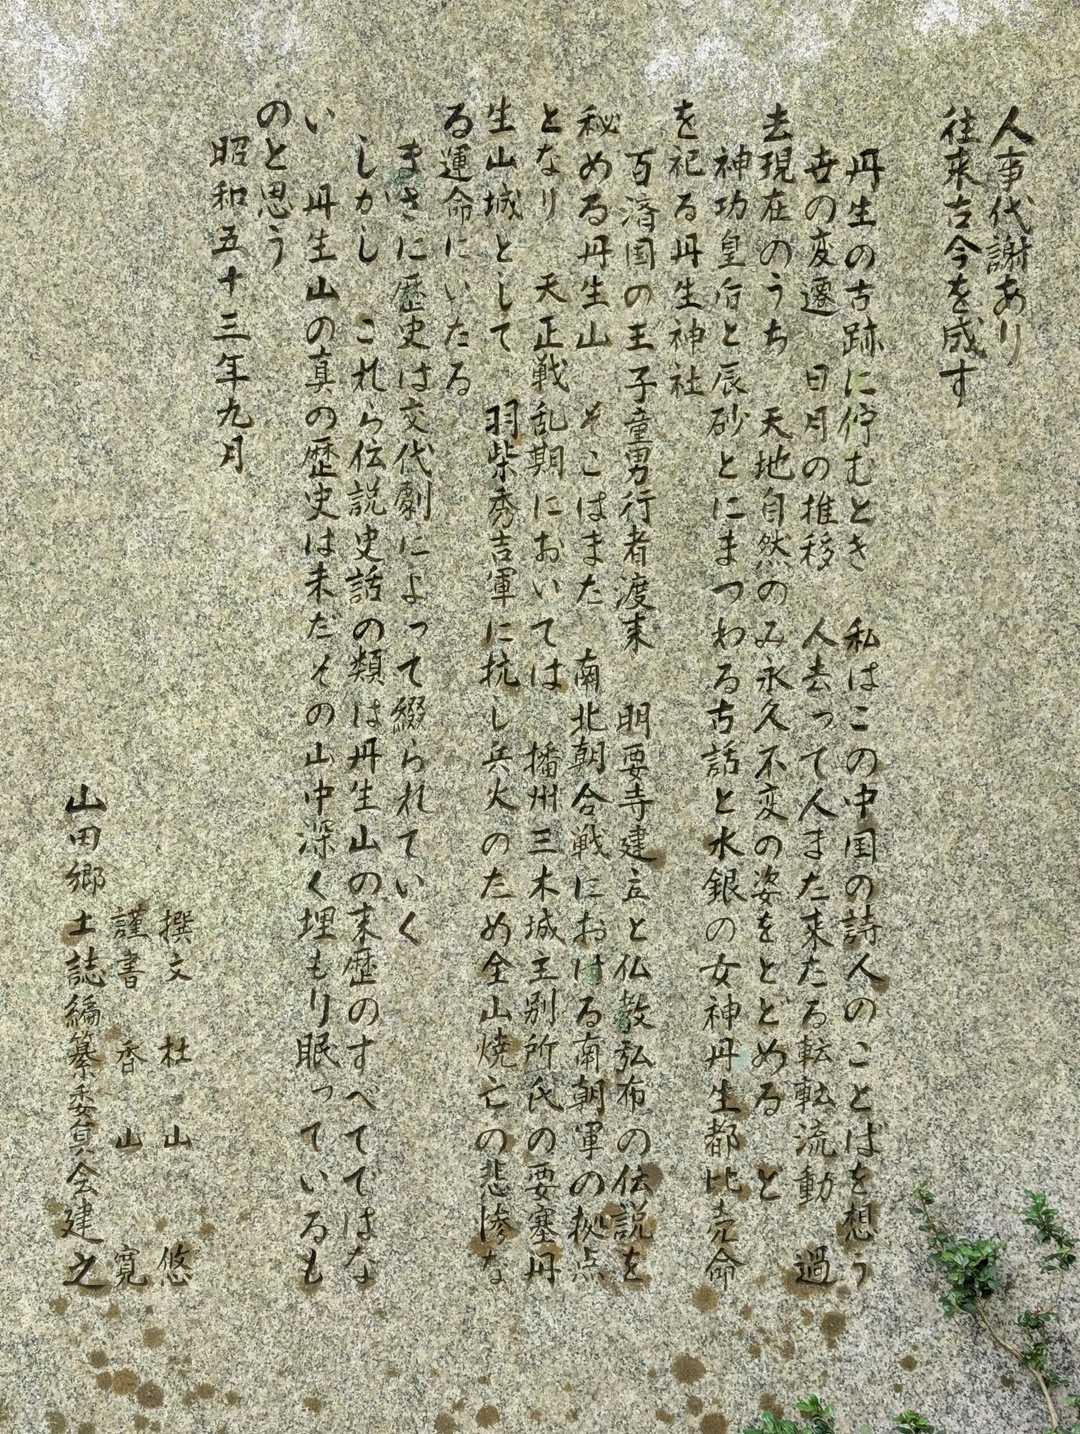 人事代謝あり
往来古今を成す
丹生の古跡に佇むとき 私はこの中国の詩人のことばを想う
世の変遷 日月の推移 人去って人また来たる転転流動 過
去現在のうち 天地自然のみ永久不変の姿をとどめる と
神功皇后と辰砂とにまつわる古話と水銀の女神丹生都比売命
を祀る丹生神社
百済国の王子童男行者渡来 明要寺建立と仏教弘布の伝説を
秘める丹生山 そこはまた 南北朝合戦における南朝軍の拠点
となり 天正戦乱期においては 播州三木城主別所氏の要塞丹
生山城として 羽柴秀吉軍に抗し兵火のため全山焼亡の悲惨な
る運命にいたる
まさに歴史は交代劇によって綴られていく
しかし これら伝説史話の類は丹生山の来歴のすべてではな
い 丹生山の真の歴史は未だその山中深く埋もり眠っているも
のと思う
昭和五十三年九月
撰文 杜山 悠
謹書 香山 寛
山田郷土誌編纂委員会建之